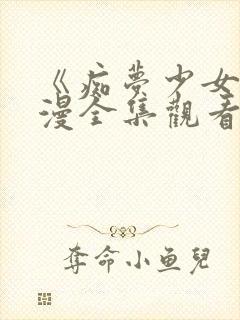 《痴夢少女
漫全集觀看
奪命小鱼兒